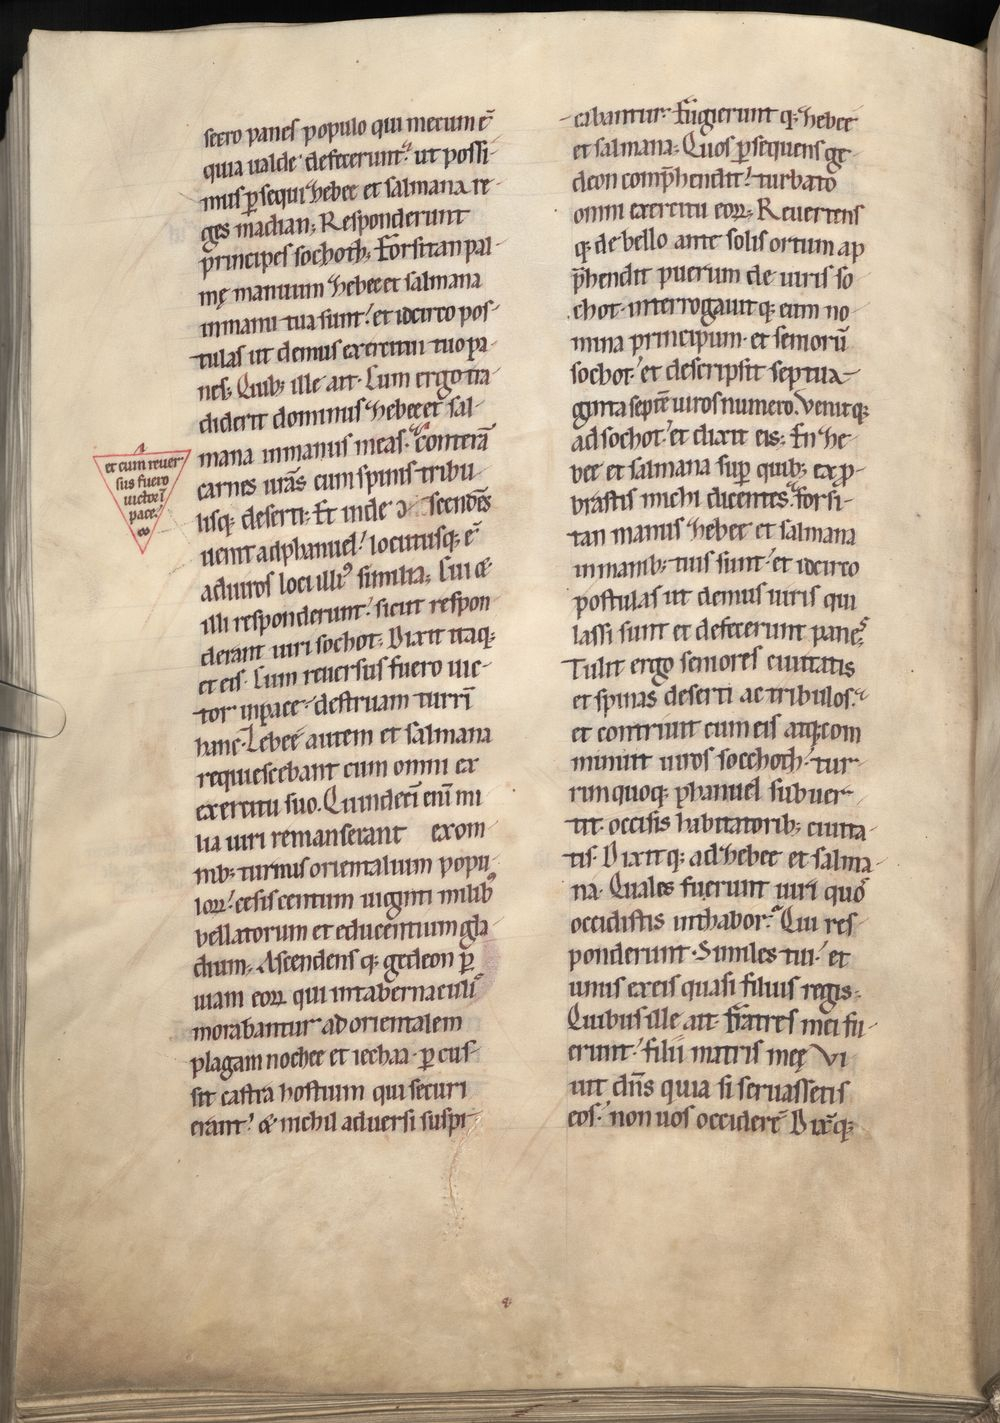 secro panes populo qui mecum ē
quia ualde defecerunt. ut possi-
mus p̄sequi hebee et salmana re-
ges madian; Responderunt
principes sochoth; Forsitan pal-
mę manuum hebee et salmana
in manu tua sunt! et idcirco pos-
tulas ut demus exercitui tuo pa-
nes; Quib; ille ait. Cum ergo tra-
diderit dominus hebee et sal-
mana in manus meas. conterā
carnes urās cum spinis tribu
lisq; deserti; Et inde secendēs
uenit ad phanuel! locutusq; ē
ad uiros loci illi᾿ similia; Cui &
illi responderunt! sicut respon
derant uiri sochot; Dixit itaq;
et eis. Cum reuersus fuero uic-
tor in pace. destruam turrī
hanc. Zebeę autem et salmana
requiescebant cum omni ex
exercitu suo. Quindecī enī mi
lia uiri remanserant exom-
nib; turmis orientalium popu-
loꝝ! cesis centum uiginti milib᾿
bellatorum et educentium gla
dium; Ascendens q; gedeon p̄
uiam eoꝝ qui in tabernaculis
morabantur ad orientalem
plagam nochee et iechaa. p̄cus-
sit castra hostium qui securi
erant! & nichil aduersi suspi-
et cum reuer-
sus fuero
uictor ī
pace.
cabantur. Fugierunt q; hebeę
et salmana; Quos p̄sequens ge-
deon comp̄hendit! turbato
omni exercitu eoꝝ; Reuertens
q; de bello ante solis ortum ap
p̄hendit puerum de uiris so
chot. interrogauitq; eum no-
mina principum. et seniorū
sochot! et descripsit septua-
ginta septē uiros numero. Venitq;
ad sochot! et dixit eis; En he-
bee et salmana sup̄ quib; exp̄-
brastis michi dicentes. forsi-
tan manus hebee et salmana
in manib; tuis sunt! et idcirco
postulas ut demus uiris qui
lassi sunt et defecerunt panes;
Tulit ergo seniores ciuitatis
et spinas deserti ac tribulos.
et contriuit cum eis atq; com
minuit uiros socchoth! tur-
rim quoq; phanuel subuer-
tit. occisis habitatorib; ciuita-
tis. Dixitq; ad hebee et salma-
na. Quales fuerunt uiri quos
occidistis in thabor. Qui res-
ponderunt. Similes tui. et
unus ex eis quasi filius regis;
Quibus ille ait. Fratres mei fu-
erunt! filii matris meę Vi
uit dn̄s quia si seruassetis
eos! non uos occiderē Dix̄q;